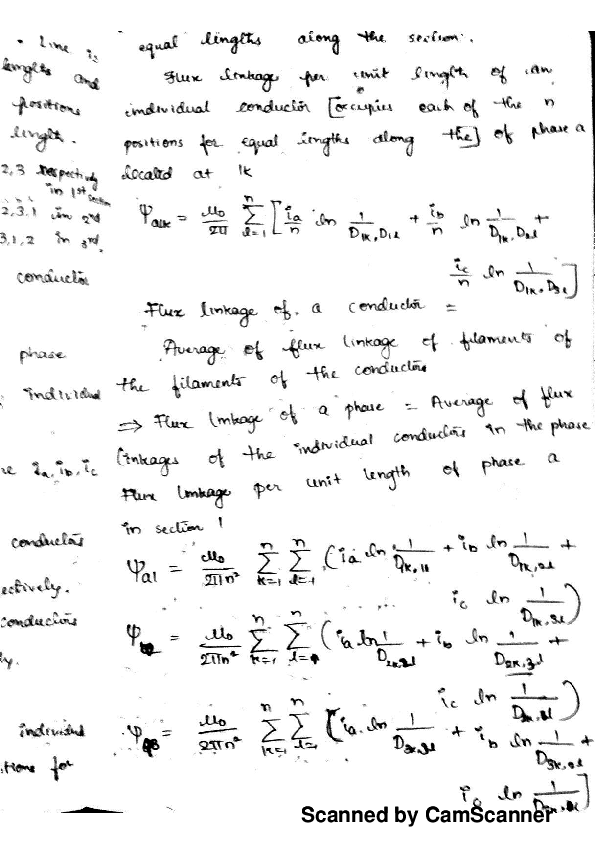 • Line is
lengths and
positions
length.
2,3 respectively
in 1st section
2,3,1 in 2nd
3,1,2 in 3rd
conductor
phase
individual
re ia, ib, ic
conductors
ectively.
conductors
ly.
individual
tions for
equal lengths along the section.
Flux linkage per unit length of an
individual conductor [occupies each of the n
positions for equal lengths along the] of phase a
located at 1k
Ψa1k = μ0/2π Σ(l=1 to n) [ia/n ln 1/D1k,D1l + ib/n ln 1/D1k,D2l +
ic/n ln 1/D1k,D3l]
Flux linkage of a conductor =
Average of flux linkage of filaments of
the filaments of the conductors
⇒ Flux linkage of a phase = Average of flux
linkages of the individual conductors in the phase
Flux linkage per unit length of phase a
in section 1
Ψa1 = μ0/2πn² Σ(k=1 to n) Σ(l=1 to n) (ia ln 1/D1k,1l + ib ln 1/D1k,2l +
ic ln 1/D1k,3l)
= μ0/2πn² Σ(k=1 to n) Σ (ia ln 1/ + ib ln 1/D2k,3l +
ic ln 1/)
= μ0/2πn² Σ(k=1 to n) Σ(l=1 to n) (ia ln 1/ + ib ln 1/ +
ln 1/]
Scanned by CamScanner